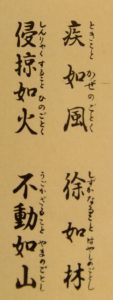 疾如風 徐如林
ときこと かぜのごとく しずかなること はやしのごとし
侵掠如火 不動如山
しんりゃくすること ひのごとく うごかざること やまのごとし